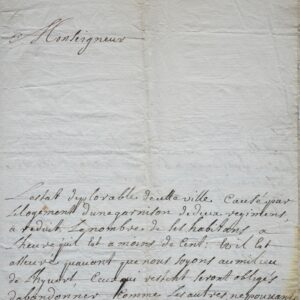 Monseigneur
L'estat deplorable de cette ville causé par
le logement d'une garnison de deux regimens
a reduit le nombre de ses habitans a
l'heure quil est a moins de cent: Et il est
asseuré quavant que nous soyons au milieu
de l'hyvert Ceux qui restent seront obligés
d'abandonner Comme les autres ne pouvant